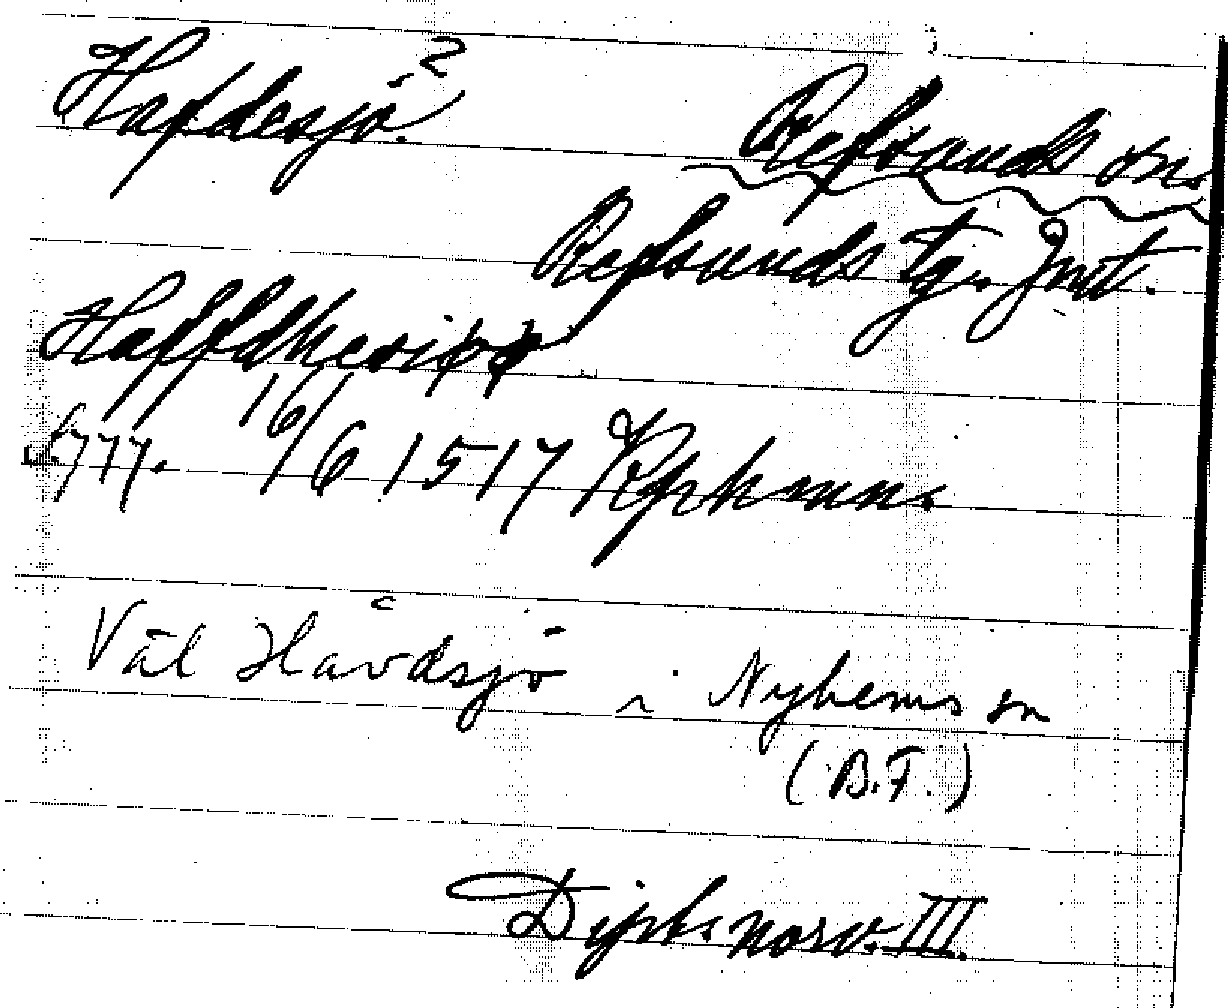 Hafdesjö? Refsunds sn.
Refsunds tg. Jmt.
Haffdhesiø
s. 777. 16/6 1517 Kphamn.
Väl Håvdsjö i Nyhems sn
(B.F.)
Dipl. norv. III.